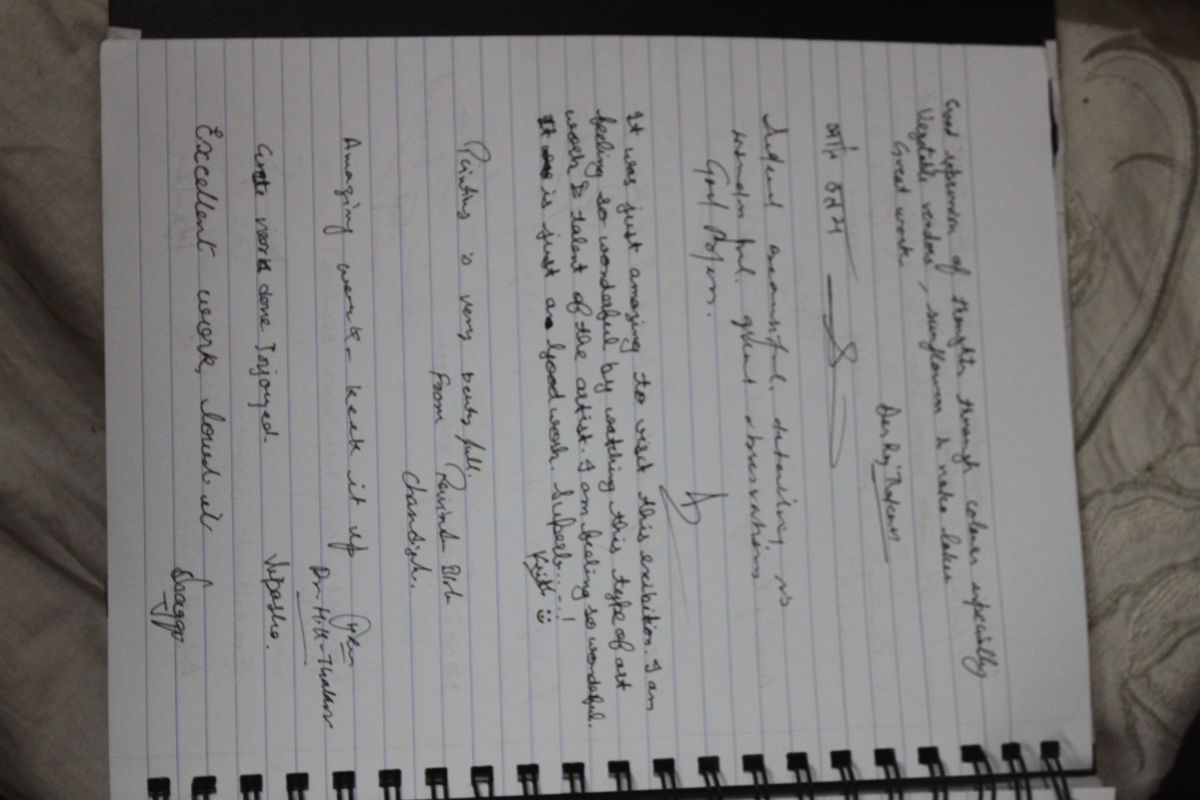 Good expression of thoughts through colour especially
Vegetable vendors, sunflower &
Great work
Indeed beautiful, detailing is
wonderful. great observations
Good
It was just amazing to visit this exibition. I am
feeling so wonderful by watching this type of art
work & talent of the artist. I am feeling so wondeful.
is just a good work. Superb....!
Kirti
Painting is very beautifull.
From
Chandigarh.
Amazing work - keek it up
Dr. Hill-Thakur
work done Injoyed
Vipasha.
Excellent work, loved it